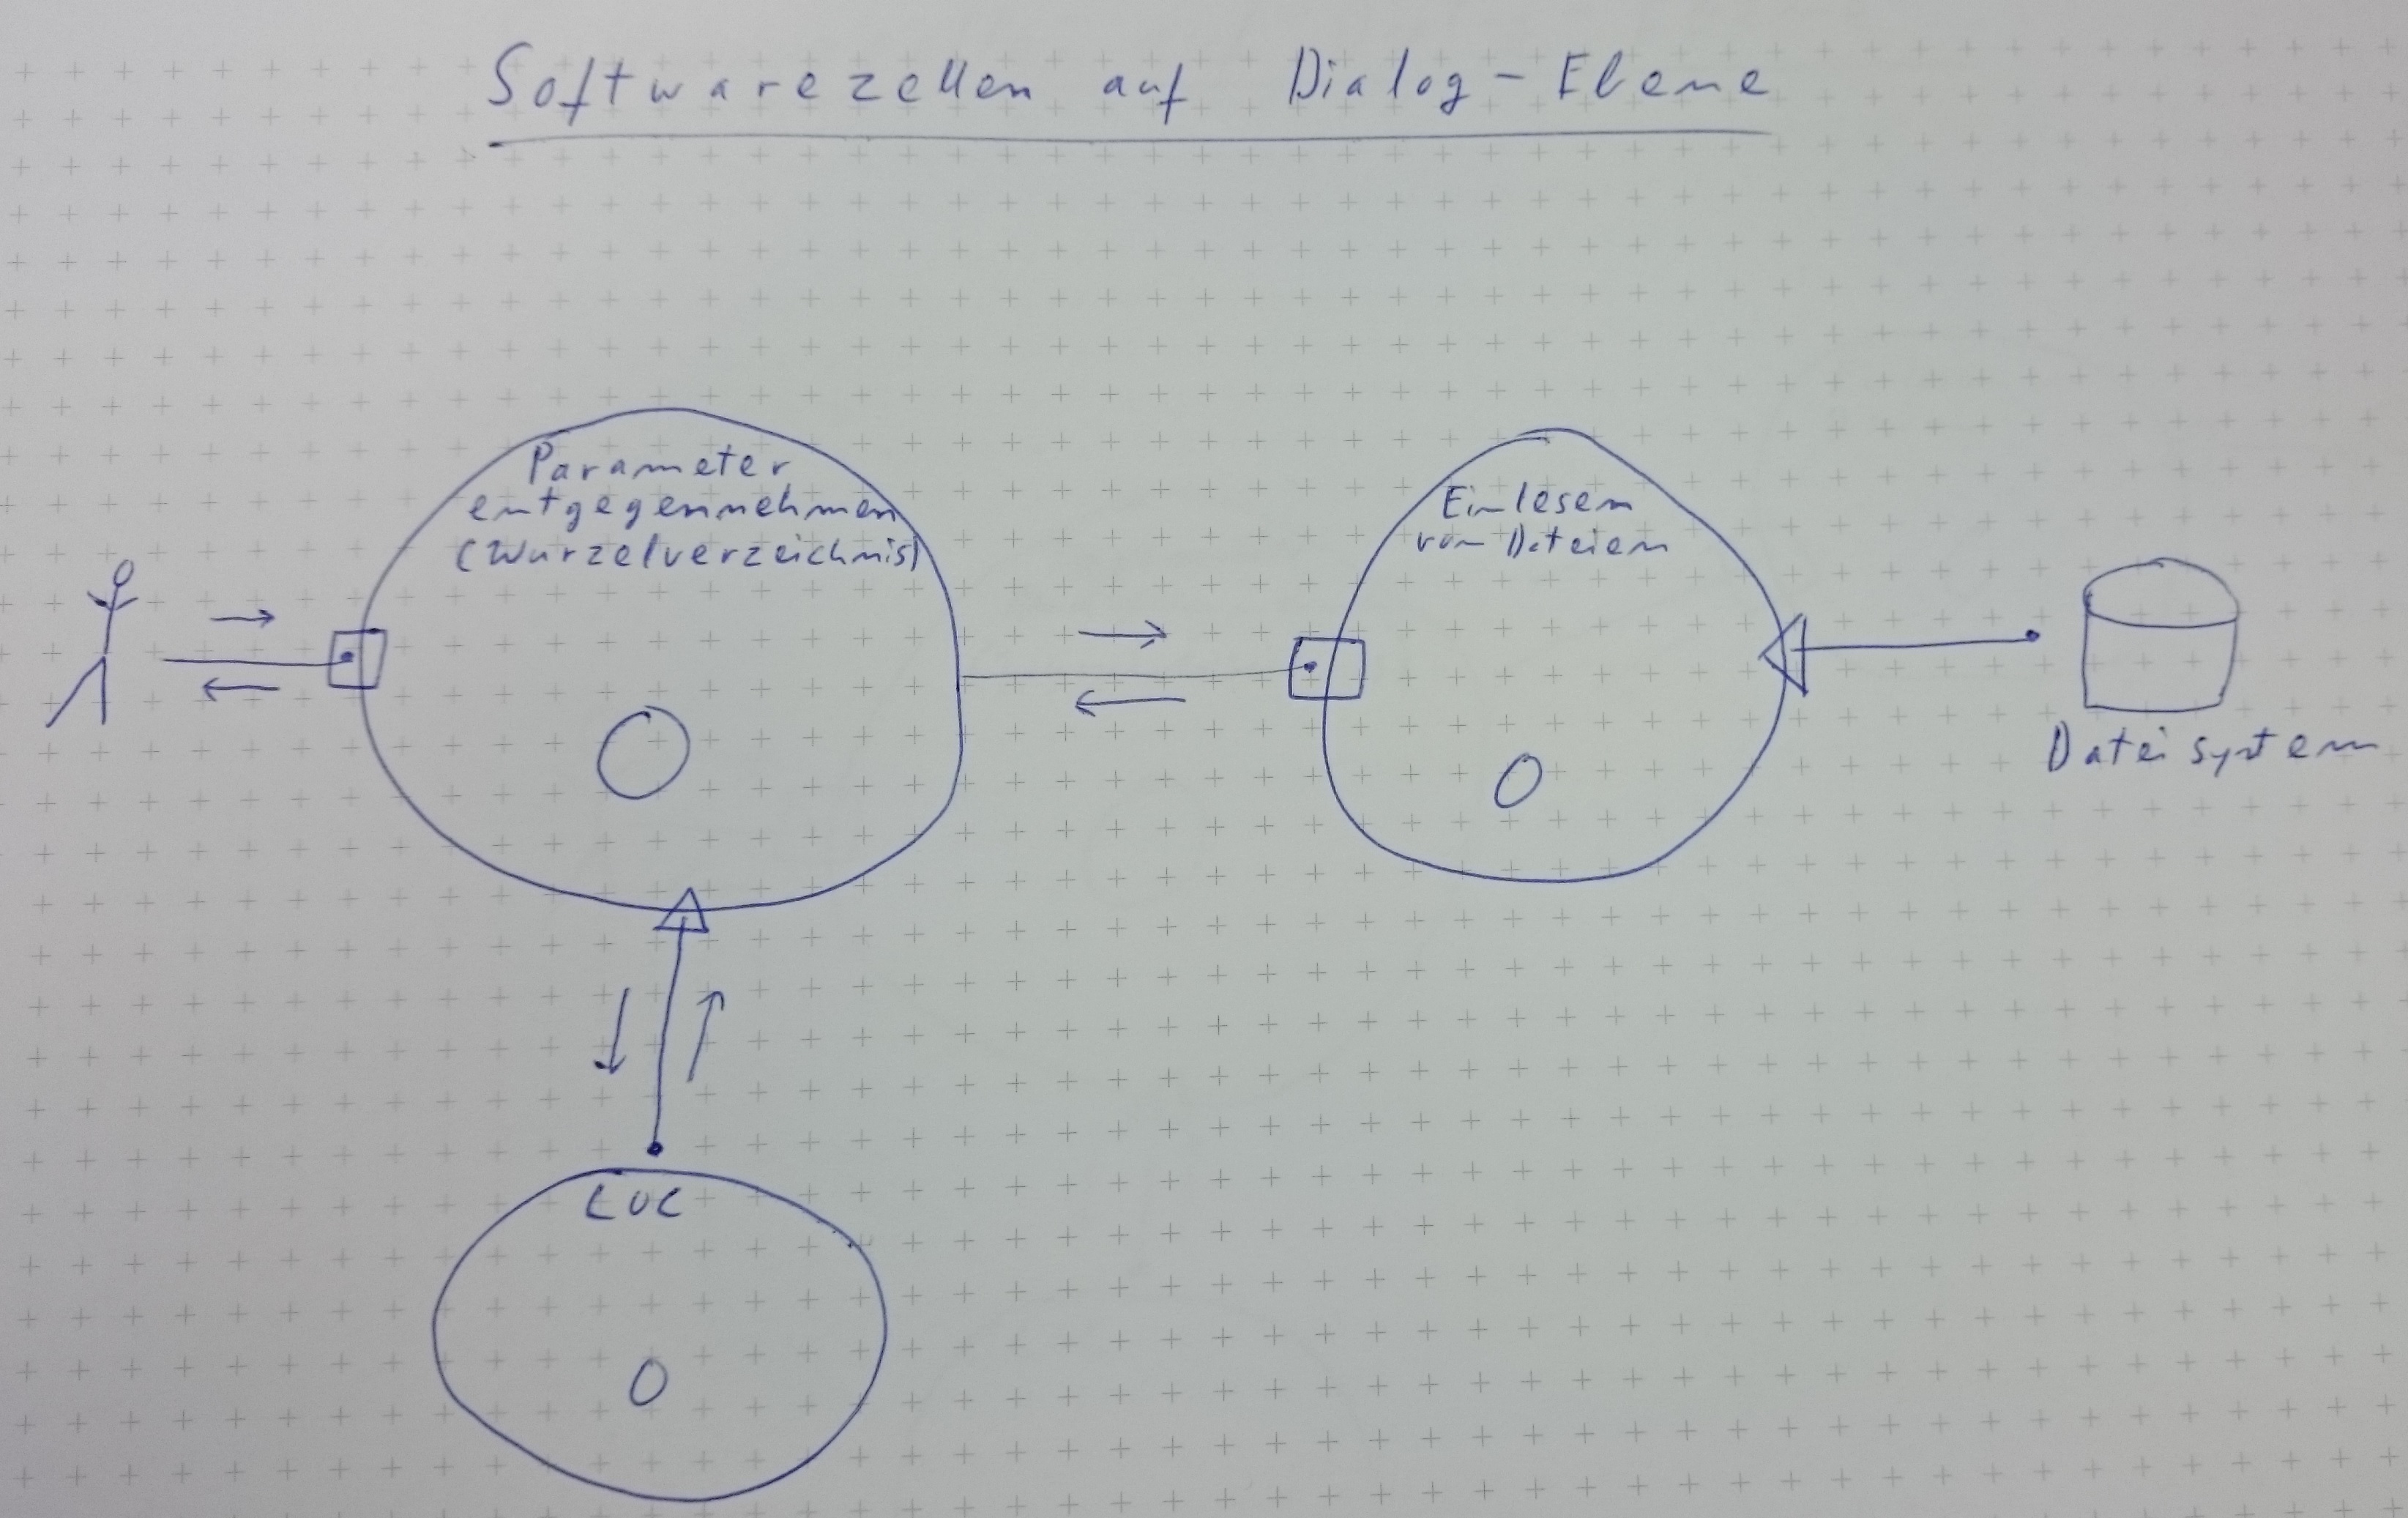 Softwarezellen auf Dialog-Ebene
Parameter
entgegennehmen
(Wurzelverzeichnis)
Einlesen
von Dateien
Dateisystem
LOC